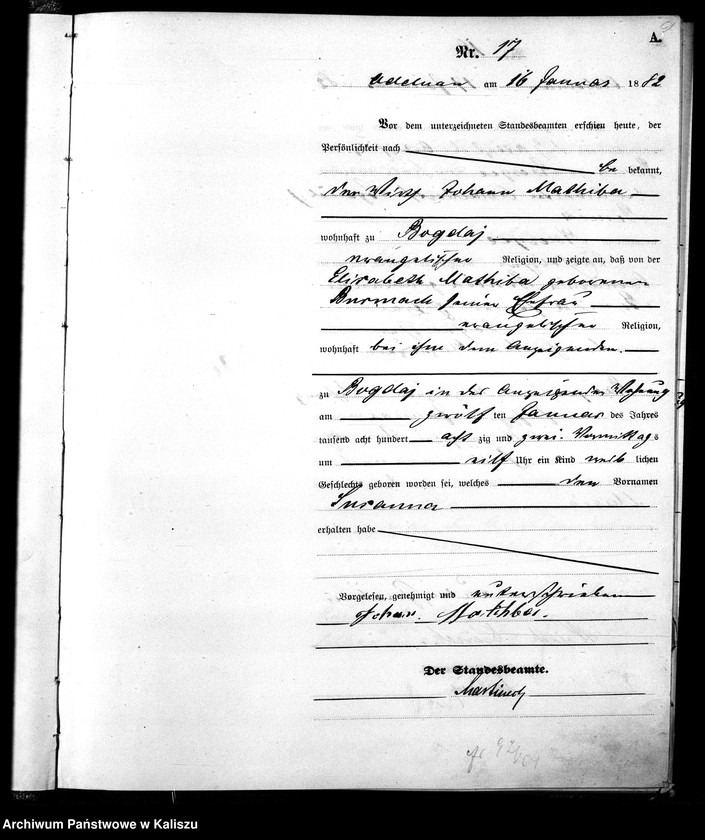 A.
Nr. 17
Adelnau am 16 Januar 1882
Vor dem unterzeichneten Standesbeamten erschien heute, der
Persönlichkeit nach
be bekannt,
der Wirth Johann Mathiba
wohnhaft zu Bogdaj
evangelischer Religion, und zeigte an, daß von der
Elisabeth Mathiba geborenen
seiner Ehefrau
evangelischer Religion,
wohnhaft bei ihm dem Anzeigenden.
zu Bogdaj in des Anzeigenden Wohnung
am zwölf ten Januar des Jahres
tausend acht hundert acht zig und zwei. Vormittags
um eilf Uhr ein Kind weib lichen
Geschlechts geboren worden sei, welches den Vornamen
Susanna
erhalten habe
Vorgelesen, genehmigt und unterschrieben
Johan.
Der Standesbeamte.
Archiwum Państwowe w Kaliszu